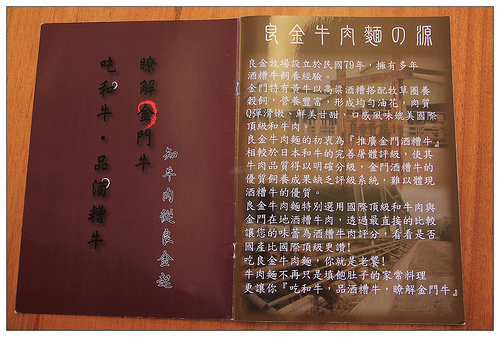 吃和牛，品酒糟牛
瞭解金門牛
知牛肉從良金起
良金牛肉麵の源
良金牧場設立於民國79年，擁有多年
酒糟牛飼養經驗。
金門特有黃牛以高粱酒糟搭配牧草圈養
穀飼，營養豐富，形成均勻油花，肉質
Q彈滑嫩、鮮美甘甜，口感風味媲美國際
頂級和牛肉。
良金牛肉麵的初衷為『推廣金門酒糟牛』
相較於日本和牛的完善屠體評級，使其
牛肉品質得以明確分級，金門酒糟牛的
優質飼養成果缺乏評級系統，難以體現
酒糟牛的優質。
良金牛肉麵特別選用國際頂級和牛肉與
金門在地酒糟牛肉，透過最直接的比較
讓您的味蕾為酒糟牛肉評分，看看是否
國產比國際頂級更讚！
吃良金牛肉麵，你就是老饕！
牛肉麵不再只是填飽肚子的家常料理
更讓你『吃和牛，品酒糟牛，瞭解金門牛』